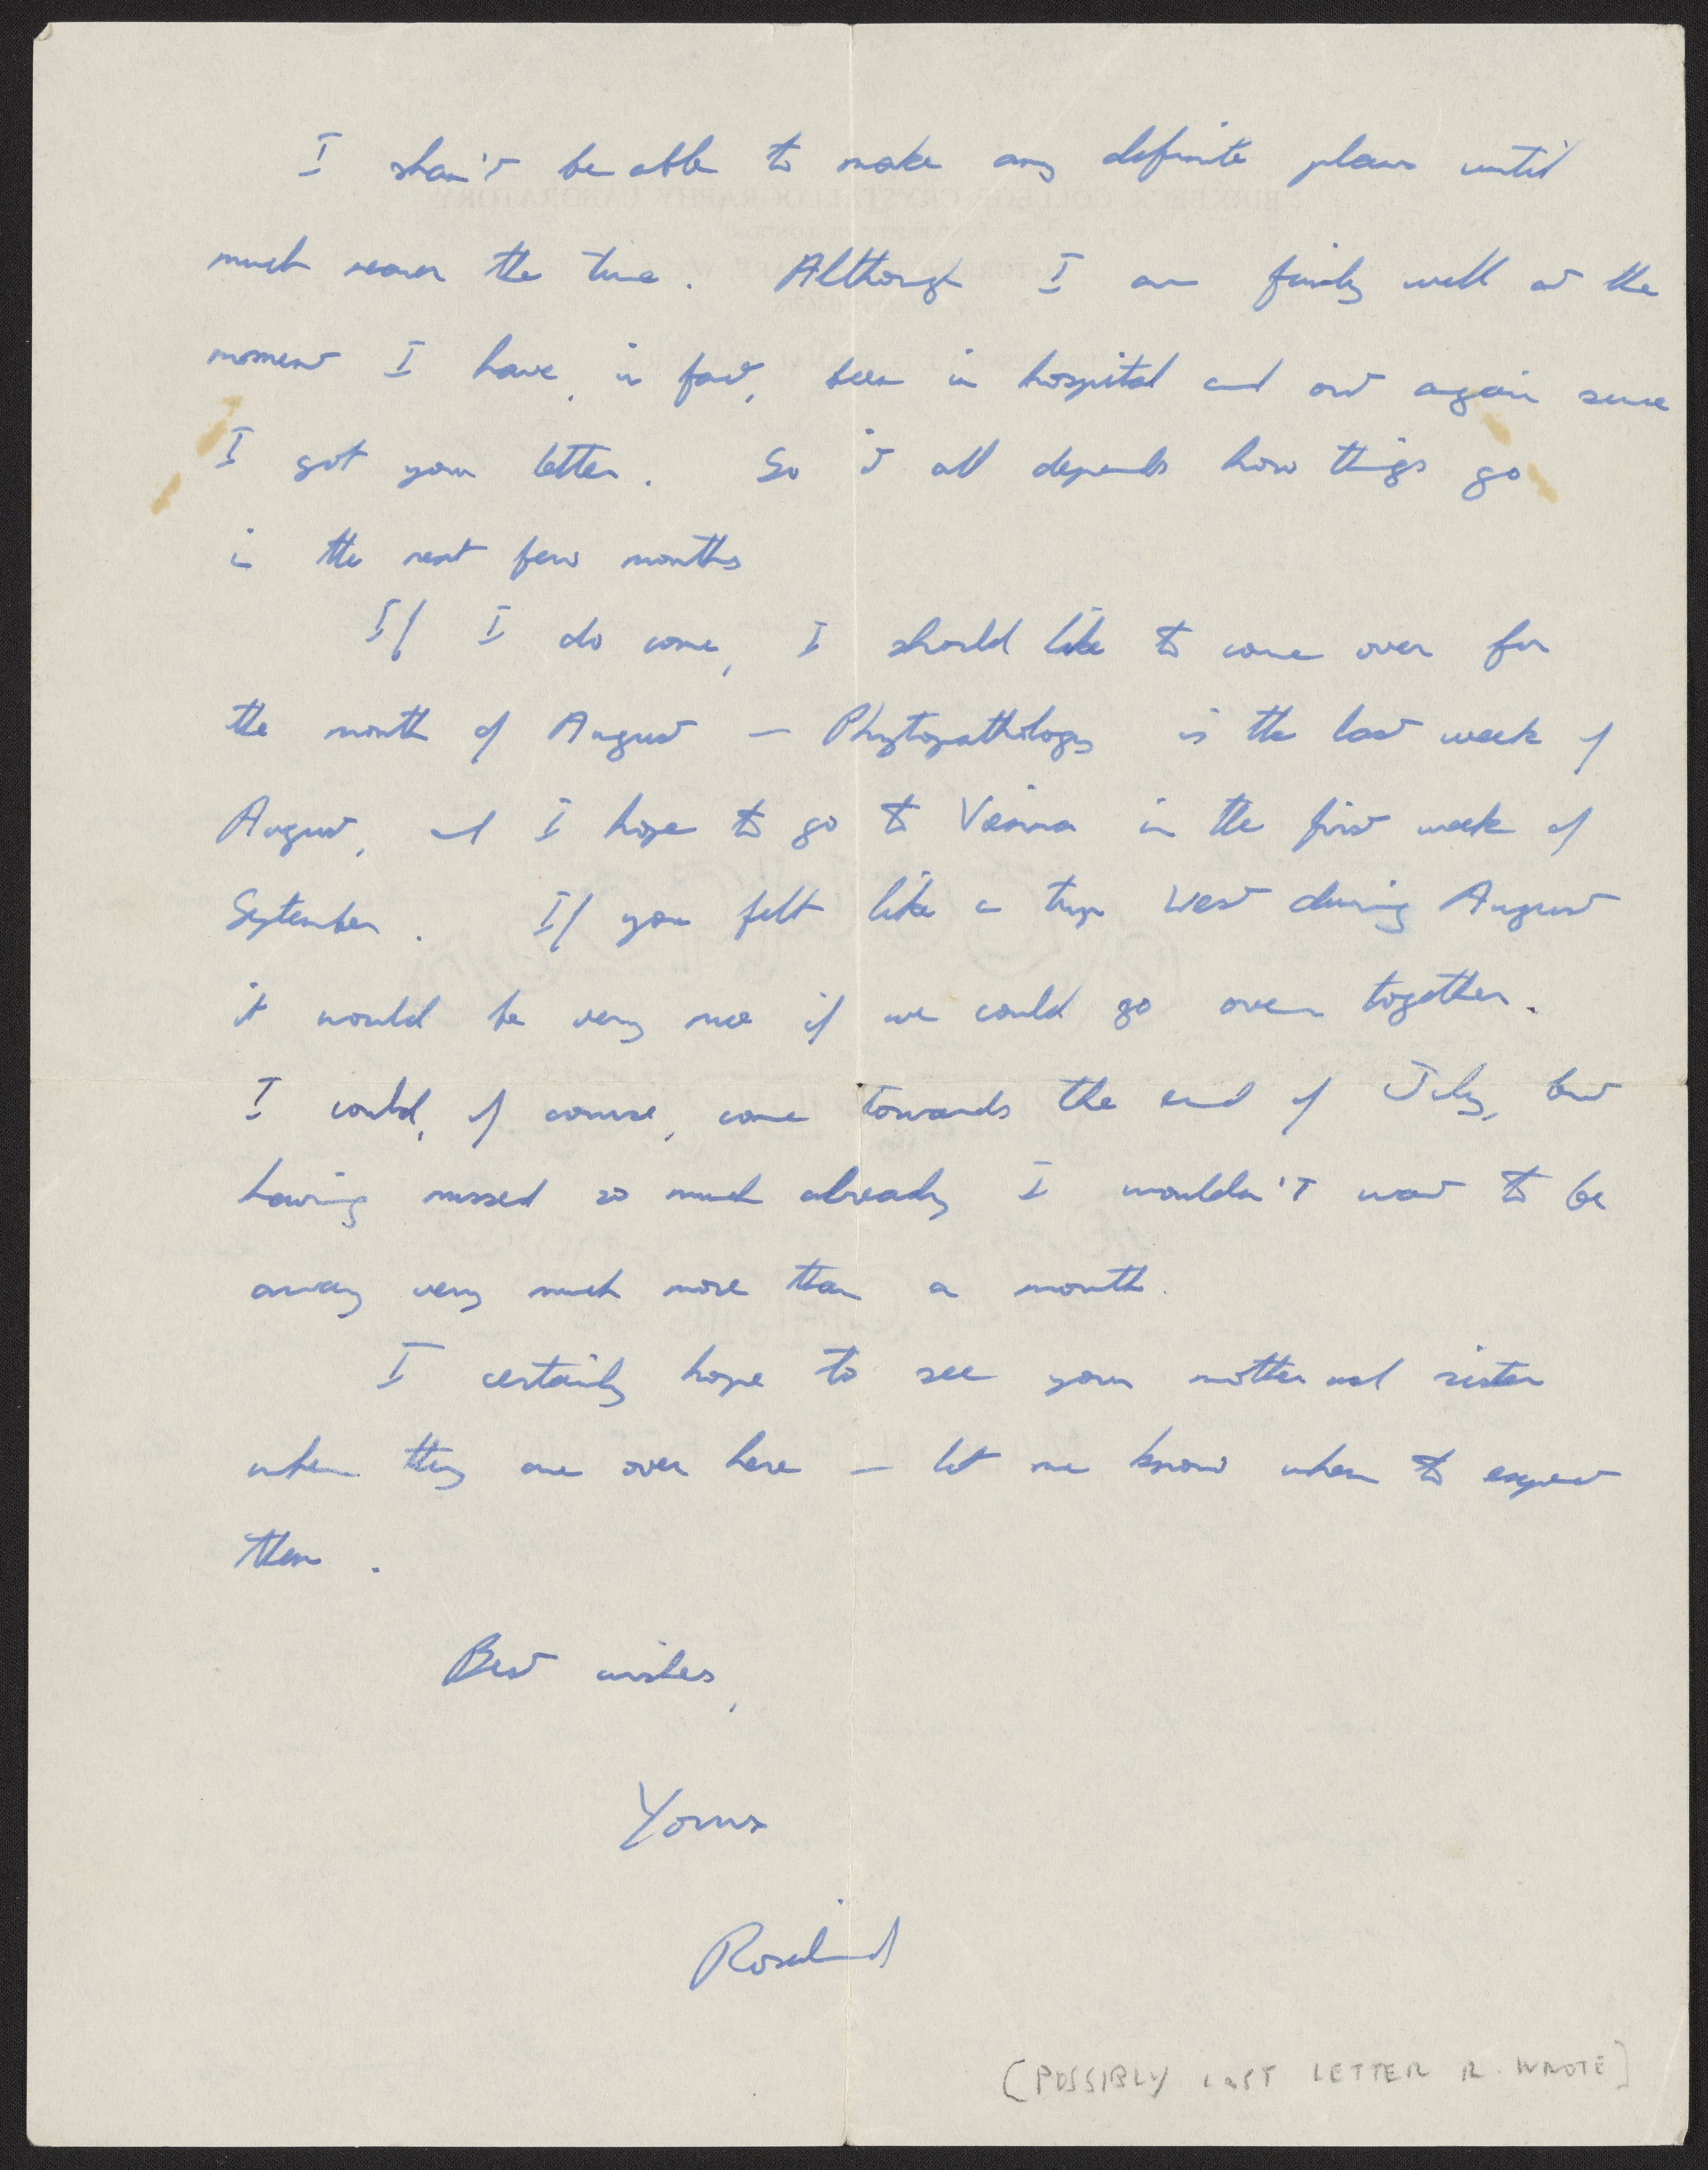 I shan't be able to make any definite plans until
much nearer the time. Although I am fairly well at the
moment I have, in fact, been in hospital and out again since
I got your letter. So it all depends how things go
in the next few months
If I do come, I should like to come over for
the month of August – Phytopathology is the last week of
August, and I hope to go to Vienna in the first week of
September. If you felt like a trip West during August
it would be very nice if we could go over together.
I could, of course, come towards the end of July, but
having missed so much already I wouldn't want to be
away very much more than a month.
I certainly hope to see your mother and sister
when they are over here – let me know when to expect
them.
Best wishes,
Yours
Rosalind
[POSSIBLY LAST LETTER R. WROTE]